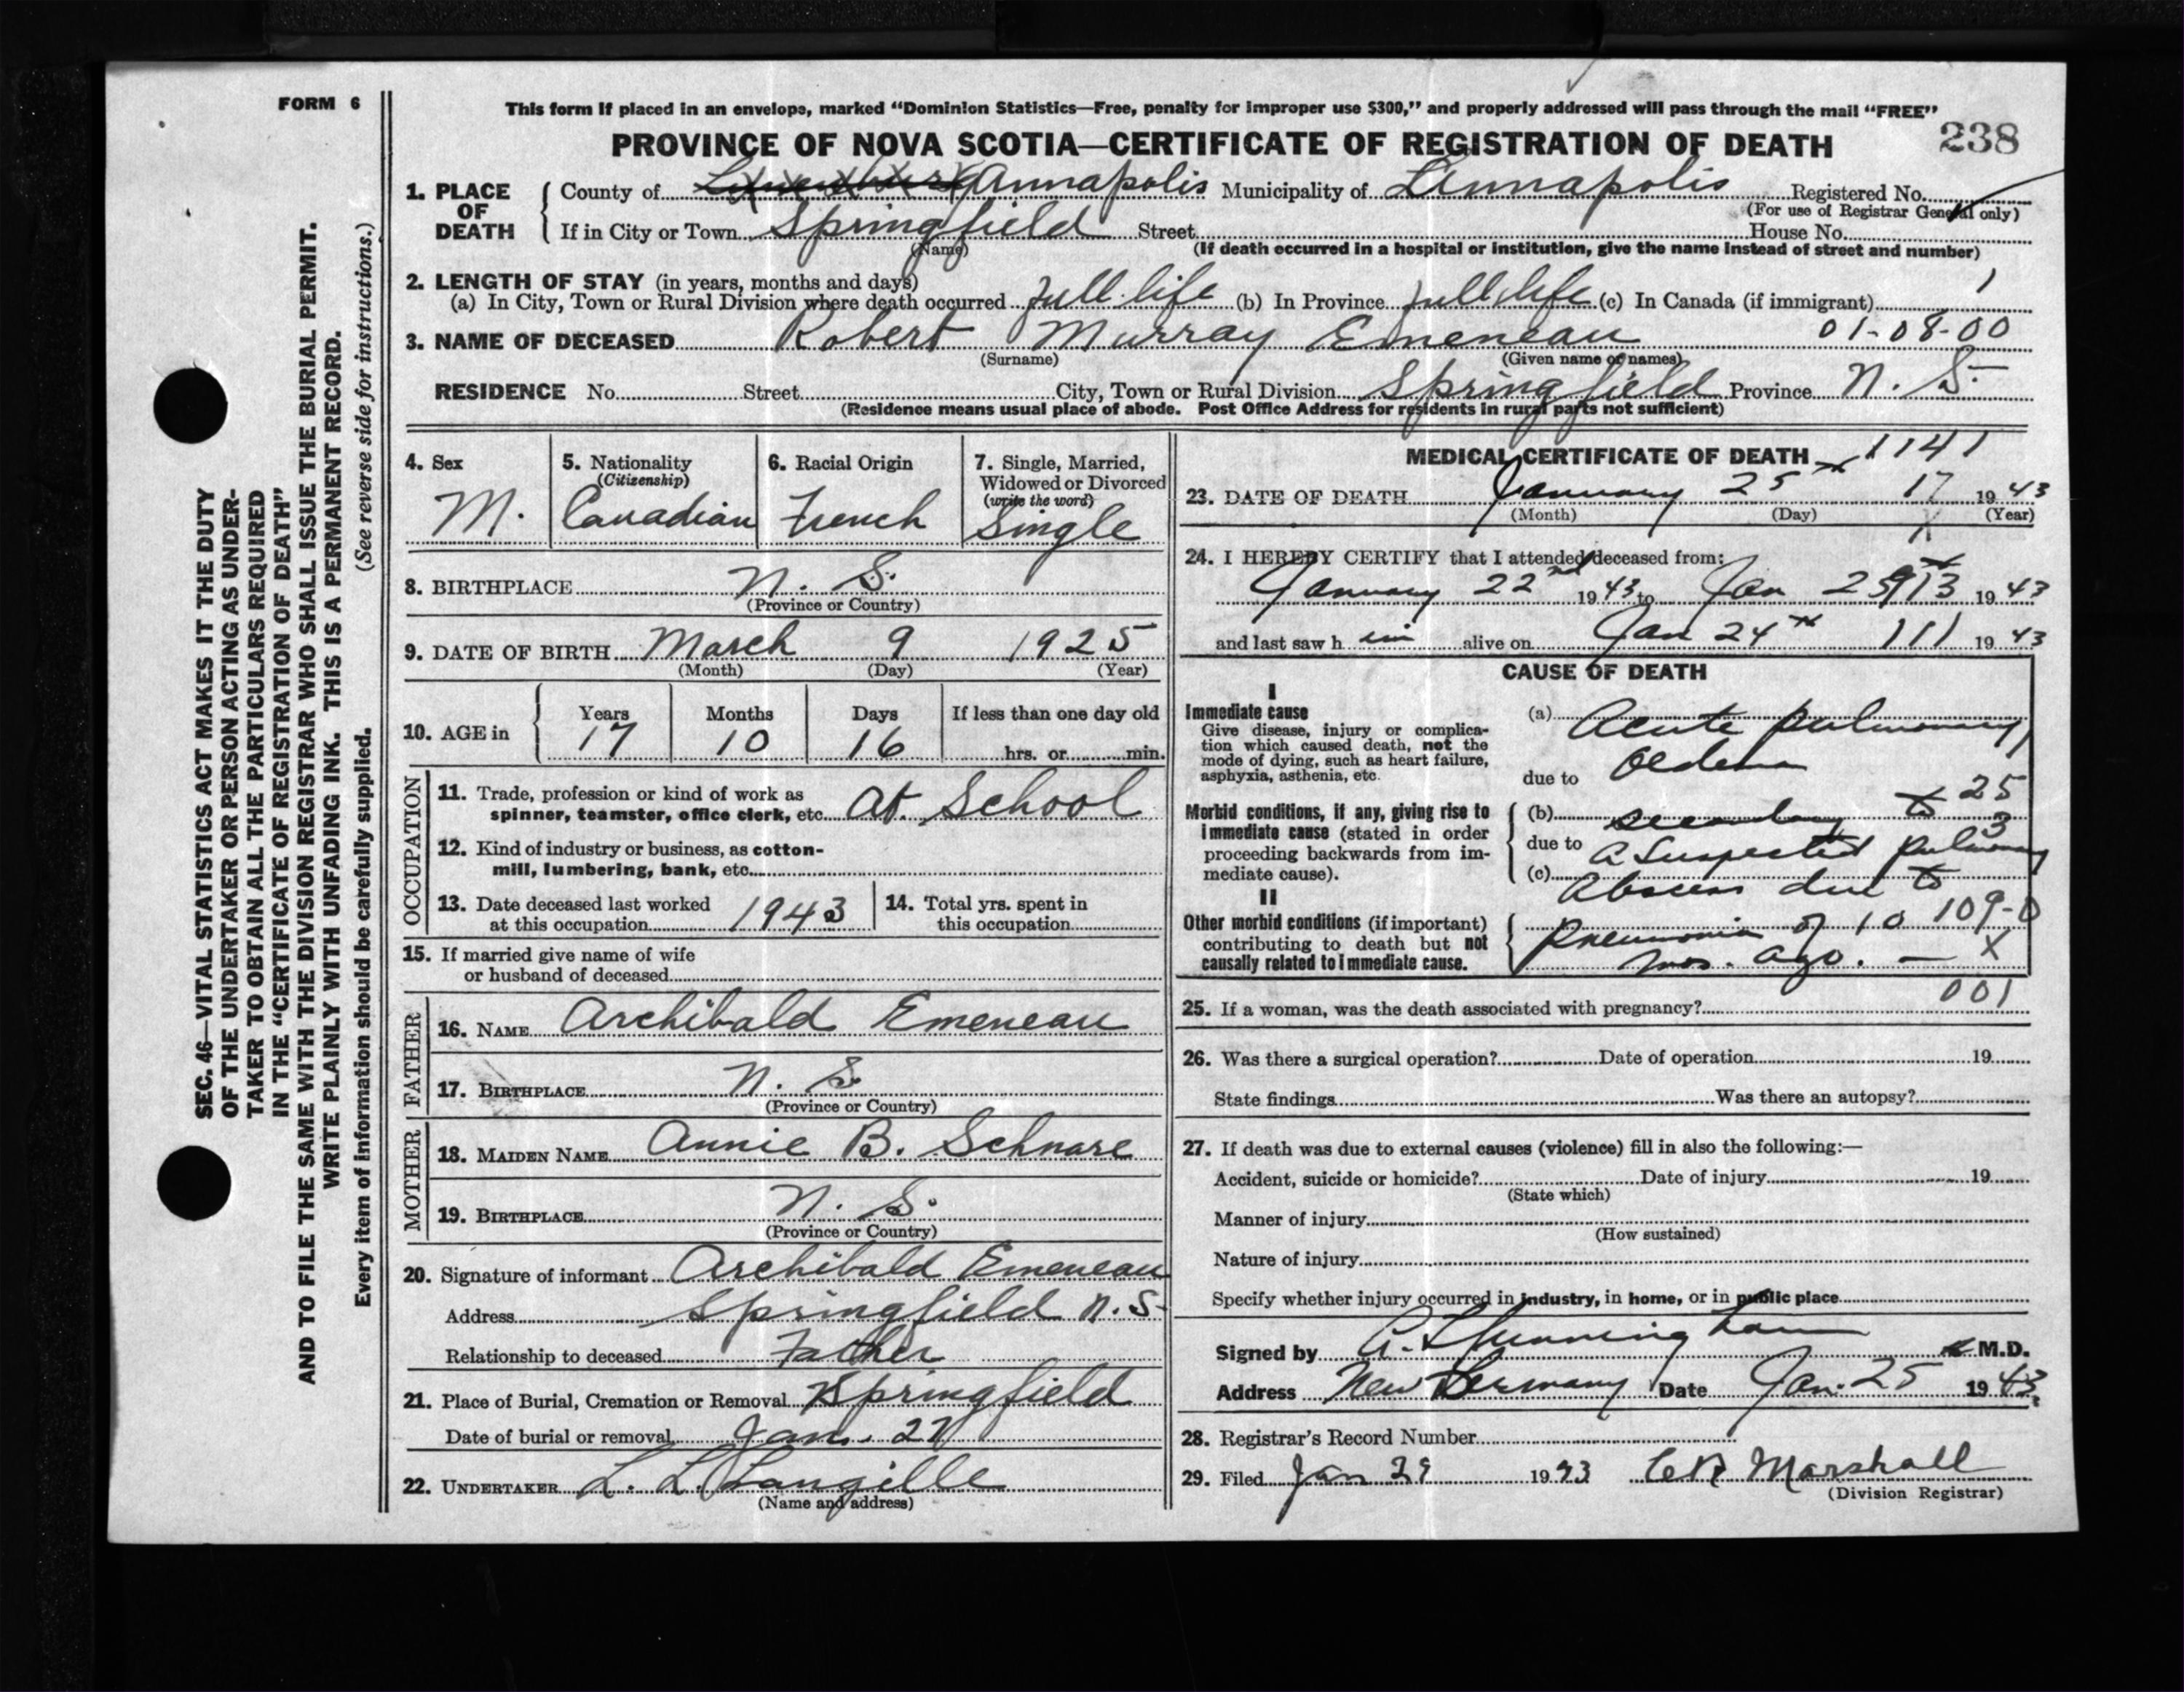 FORM 6
This form if placed in an envelope, marked "Dominion Statistics—Free, penalty for improper use $300," and properly addressed will pass through the mail "FREE"
PROVINCE OF NOVA SCOTIA—CERTIFICATE OF REGISTRATION OF DEATH
238
1. PLACE OF DEATH
County of Lunenburg Annapolis Municipality of Annapolis Registered No.
(For use of Registrar General only)
If in City or Town Springfield Street House No.
(Name) (If death occurred in a hospital or institution, give the name instead of street and number)
2. LENGTH OF STAY (in years, months and days)
(a) In City, Town or Rural Division where death occurred full life (b) In Province full life (c) In Canada (if immigrant) 1
3. NAME OF DECEASED Robert Murray Emeneau 01-08-00
(Surname) (Given name or names)
RESIDENCE No. Street City, Town or Rural Division Springfield Province N. S.
(Residence means usual place of abode. Post Office Address for residents in rural parts not sufficient)
4. Sex
M.
5. Nationality
(Citizenship)
Canadian
6. Racial Origin
French
7. Single, Married,
Widowed or Divorced
(write the word)
Single
8. BIRTHPLACE N. S.
(Province or Country)
9. DATE OF BIRTH March 9 1925
(Month) (Day) (Year)
10. AGE in
Years Months Days If less than one day old
17 10 16 hrs. or min.
OCCUPATION
11. Trade, profession or kind of work as
spinner, teamster, office clerk, etc. At School
12. Kind of industry or business, as cotton-
mill, lumbering, bank, etc.
13. Date deceased last worked
at this occupation 1943
14. Total yrs. spent in
this occupation
15. If married give name of wife
or husband of deceased
FATHER
16. NAME Archibald Emeneau
17. BIRTHPLACE N. S.
(Province or Country)
MOTHER
18. MAIDEN NAME Annie B. Schnare
19. BIRTHPLACE N. S.
(Province or Country)
20. Signature of informant Archibald Emeneau
Address Springfield N. S.
Relationship to deceased Father
21. Place of Burial, Cremation or Removal Springfield
Date of burial or removal Jan. 27
22. UNDERTAKER L. L. Langille
(Name and address)
MEDICAL CERTIFICATE OF DEATH 1141
23. DATE OF DEATH January 25th 17 1943
(Month) (Day) (Year)
X
24. I HEREBY CERTIFY that I attended deceased from:
January 22nd 1943 to Jan 25th 1943
and last saw h im alive on Jan 24th 111 1943
CAUSE OF DEATH
I
Immediate cause
Give disease, injury or complica-
tion which caused death, not the
mode of dying, such as heart failure,
asphyxia, asthenia, etc.
(a) Acute pulmonary
due to Oedema
Morbid conditions, if any, giving rise to
immediate cause (stated in order
proceeding backwards from im-
mediate cause).
25
(b) secondary to 3
due to a suspected pulmonary
(c) Abscess due to
II
Other morbid conditions (if important)
contributing to death but not
causally related to immediate cause.
pneumonia of 10 109-0
mos. ago. — X
001
25. If a woman, was the death associated with pregnancy?
26. Was there a surgical operation? Date of operation 19
State findings Was there an autopsy?
27. If death was due to external causes (violence) fill in also the following:—
Accident, suicide or homicide? Date of injury 19
(State which)
Manner of injury
(How sustained)
Nature of injury
Specify whether injury occurred in industry, in home, or in public place
Signed by M.D.
Address New Germany Date Jan. 25 1943
28. Registrar's Record Number
29. Filed Jan 29 1943 CR Marshall
(Division Registrar)
SEC. 46—VITAL STATISTICS ACT MAKES IT THE DUTY
OF THE UNDERTAKER OR PERSON ACTING AS UNDER-
TAKER TO OBTAIN ALL THE PARTICULARS REQUIRED
IN THE "CERTIFICATE OF REGISTRATION OF DEATH"
AND TO FILE THE SAME WITH THE DIVISION REGISTRAR WHO SHALL ISSUE THE BURIAL PERMIT.
WRITE PLAINLY WITH UNFADING INK. THIS IS A PERMANENT RECORD.
Every item of information should be carefully supplied. (See reverse side for instructions.)